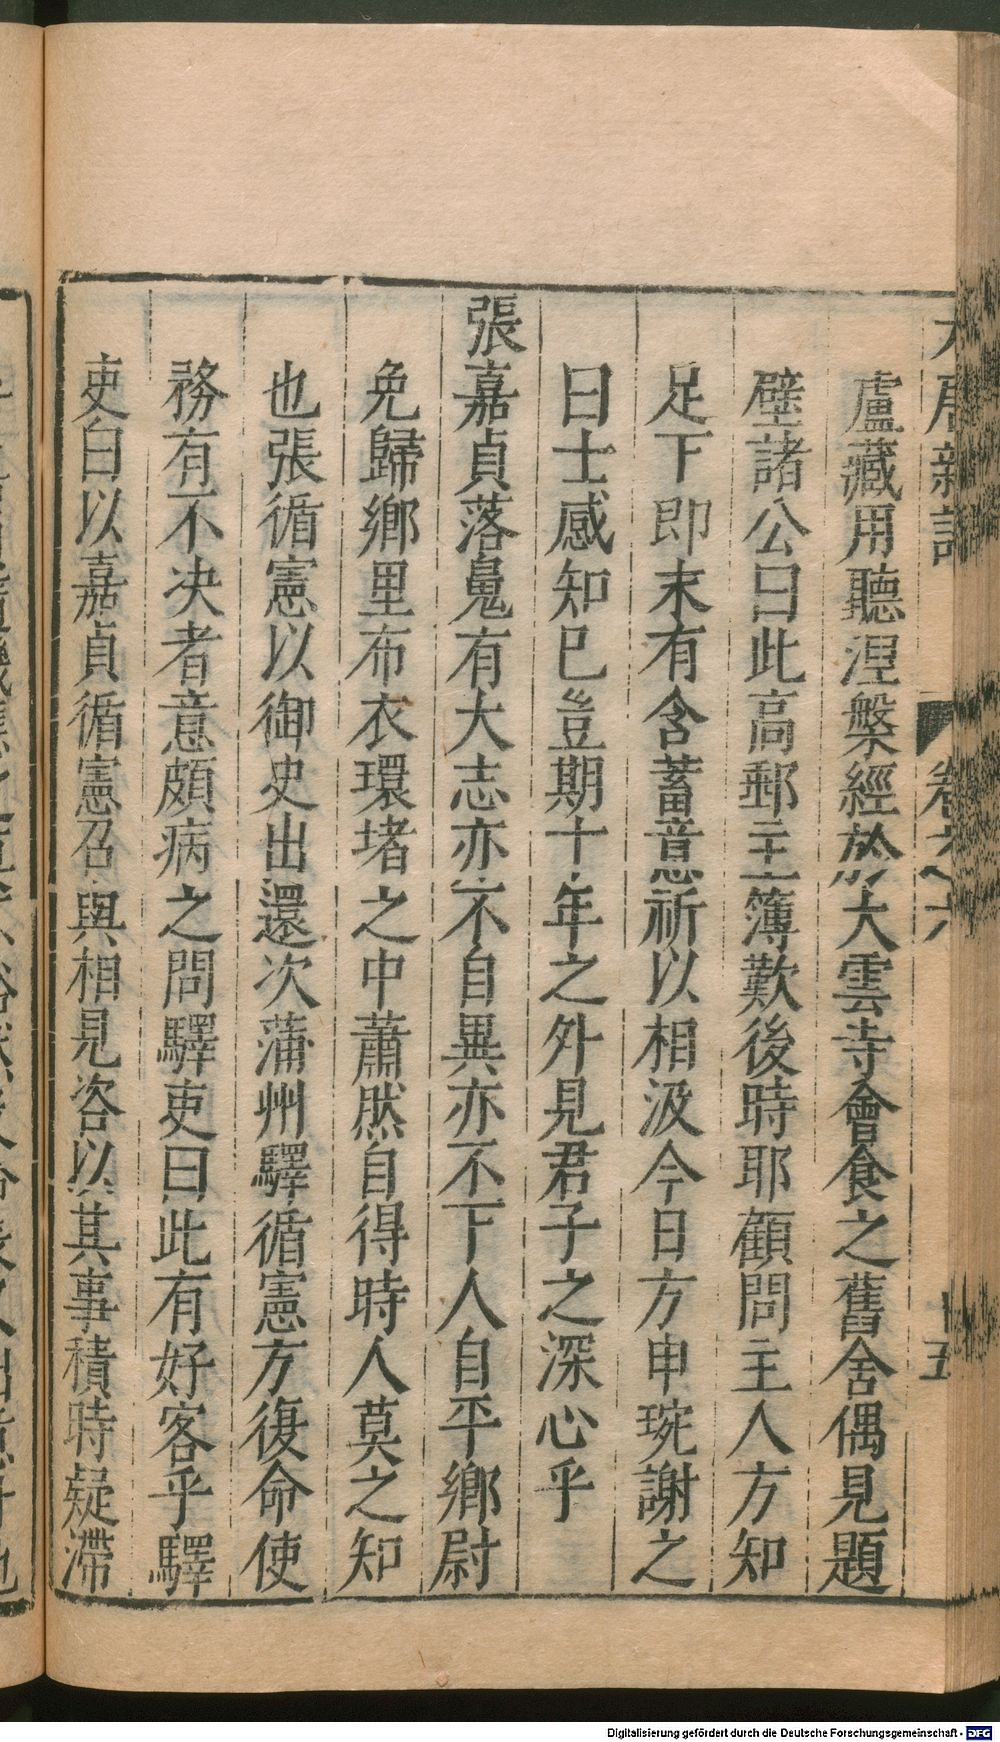 盧藏用聽涅槃經於大雲寺會食之舊舍偶見題
壁諸公曰此高郵主簿歎後時耶顧問主人方知
足下即末有含蓄意祈以相汲今日方申琬謝之
曰士感知已豈期十年之外見君子之深心乎
張嘉貞落鬼有大志亦不自異亦不下人自平鄉尉
免歸鄉里布衣環堵之中蕭然自得時人莫之知
也張循憲以御史出還次蒲州驛循憲方復命使
務有不決者意頗病之問驛吏曰此有好客乎驛
吏白以嘉貞循憲召與相見咨以其事積時疑滯
Digitalisierung gefördert durch die Deutsche Forschungsgemeinschaft - DFG